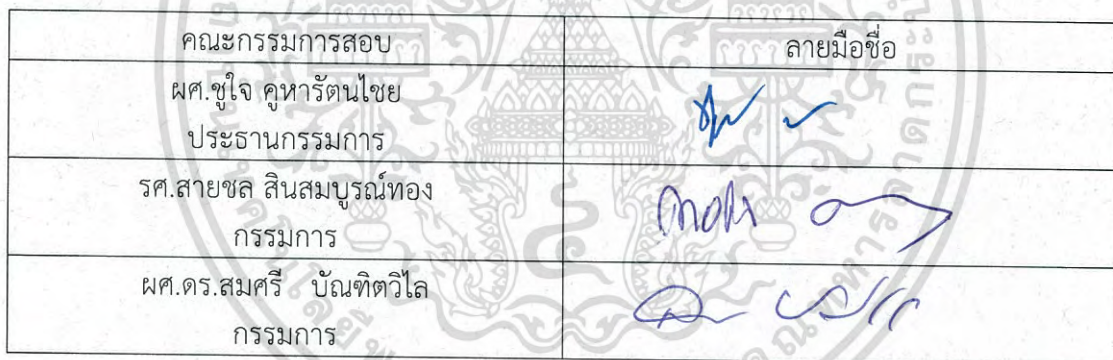 คณะกรรมการสอบ ลายมือชื่อ
ผศ.ชูใจ คูหารัตนไชย
ประธานกรรมการ
รศ.สายชล สินสมบูรณ์ทอง
กรรมการ
ผศ.ดร.สมศรี บัณฑิตวิไล
กรรมการ